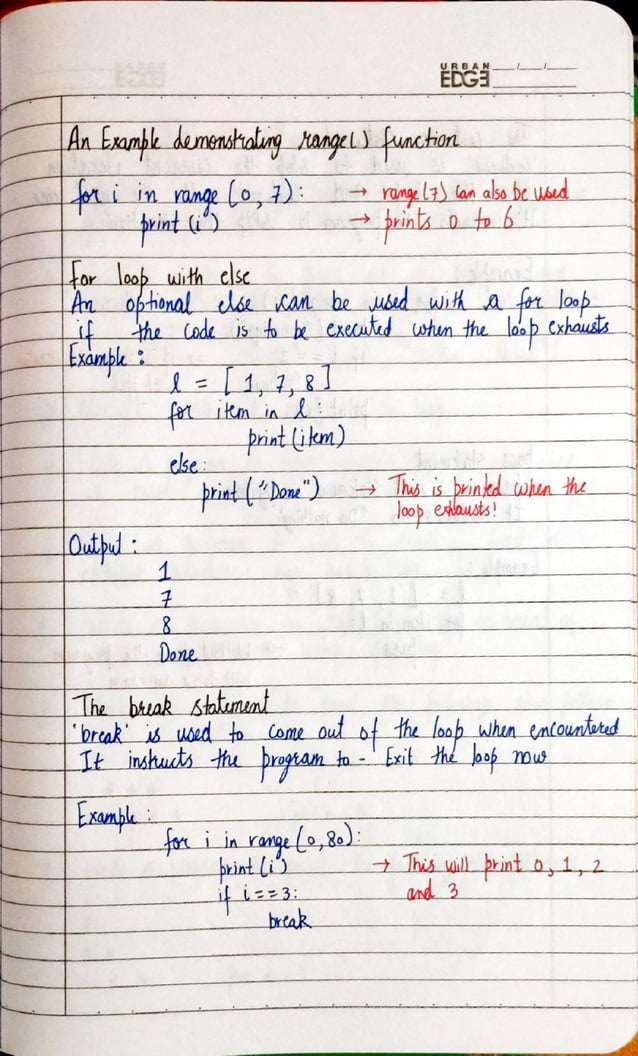 URBAN
EDGE
An Example demonstrating range() function
for i in range (0, 7): → range(7) can also be used
print (i) → prints 0 to 6
For loop with else
An optional else can be used with a for loop
if the code is to be executed when the loop exhausts
Example :
l = [1, 7, 8]
for item in l:
print(item)
else:
print ("Done") → This is printed when the
loop exhausts!
Output :
1
7
8
Done
The break statement
'break' is used to come out of the loop when encountered
It instructs the program to - Exit the loop now
Example :
for i in range (0, 80):
print (i) → This will print 0, 1, 2
if i==3: and 3
break